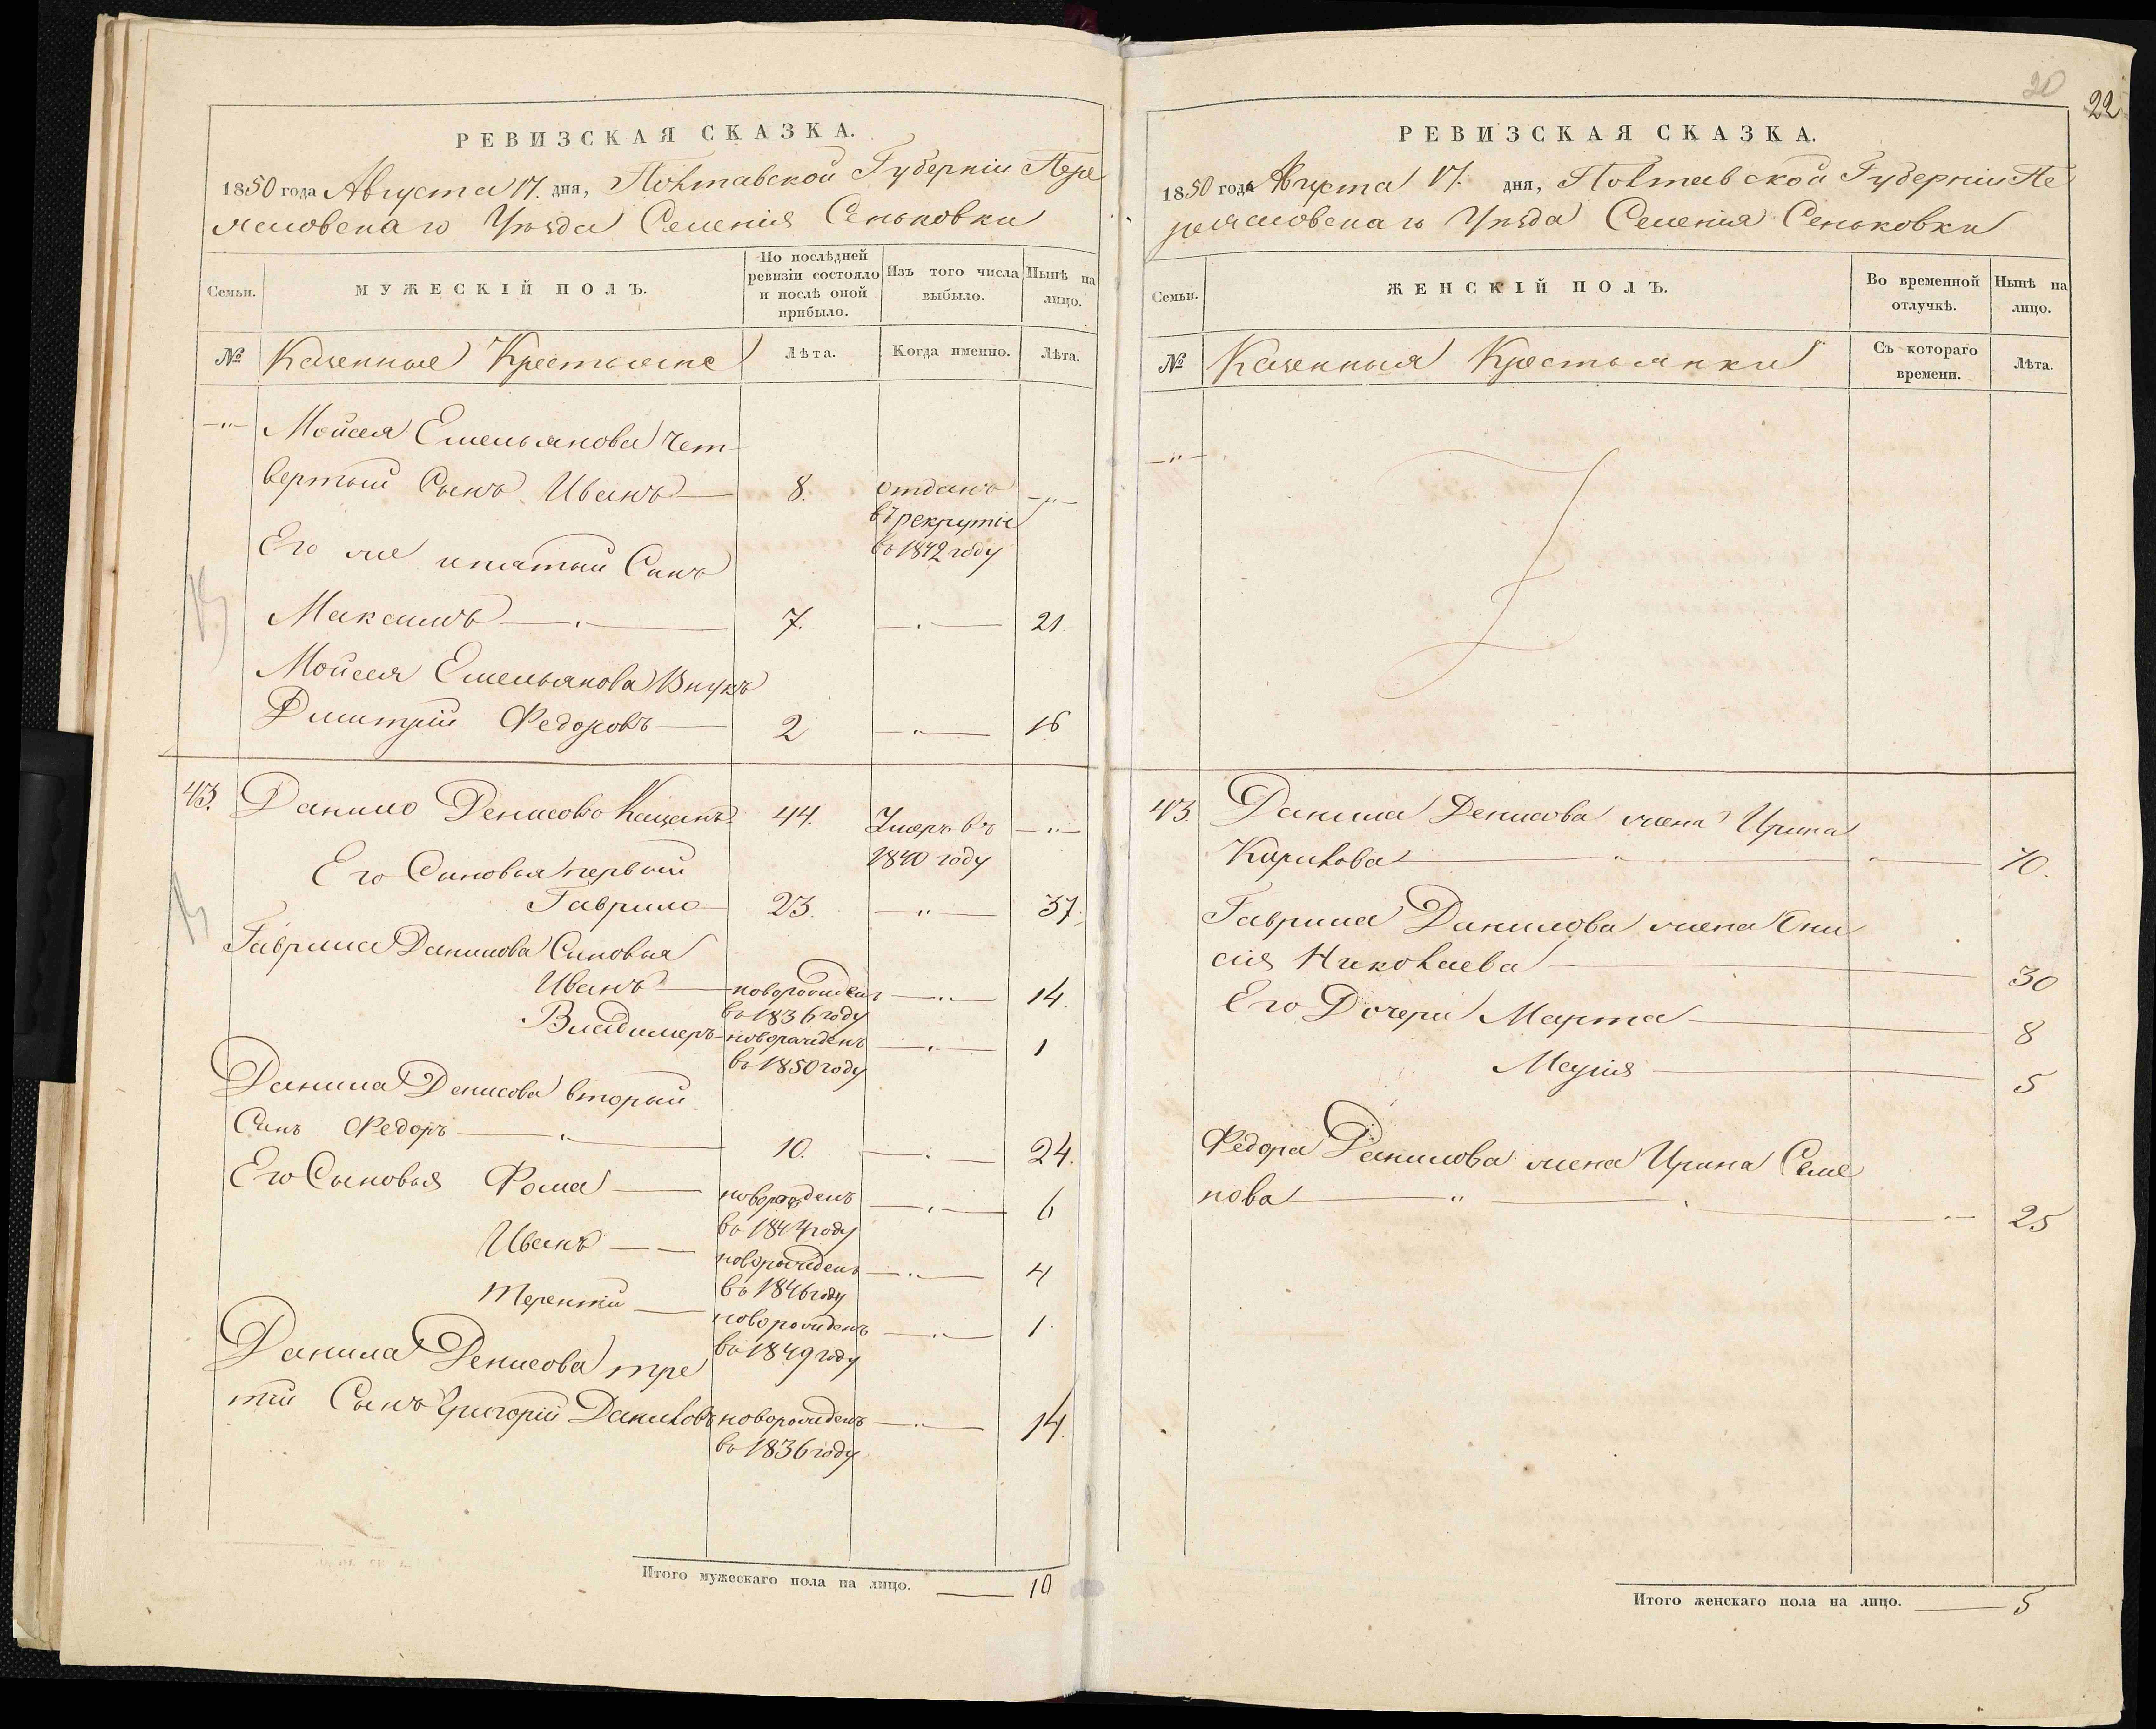 РЕВИЗСКАЯ СКАЗКА.
1850 года Августа 17. дня, Полтавской Губерніи Пере
яславскаго Уѣзда Селенія Сеньковки
Семьи.
МУЖЕСКІЙ ПОЛЪ.
По послѣдней
ревизіи состояло
и послѣ оной
прибыло.
Изъ того числа
выбыло.
Нынѣ на
лицо.
№ Казенные Крестьяне
Лѣта.
Когда именно.
Лѣта.
—„— Мойсея Емельянова чет
вертый Сынъ Иванъ — 8. отданъ —„—
въ рекруты
въ 1842 году
Его же и пятый Сынъ
Максимъ — 7. — 21.
Мойсея Емельянова Внукъ
Дмитрій Федоровъ — 2 —„— 16
43. Данило Денисовъ Кацанъ 44. Умеръ въ —„—
1840 году
Его Сыновья первый
Гаврило — 23. —„— 37.
Гаврила Данилова Сыновья
Иванъ — новорожденъ —„— 14.
въ 1836 году
Владимеръ — новорожденъ —„— 1
въ 1850 году
Данила Денисова вторый
Сынъ Федоръ — 10. — 24.
Его Сыновья Фома — новорожденъ — 6
въ 1844 году
Иванъ — новорожденъ —„— 4
въ 1846 году
Терентій — новорожденъ —„— 1
въ 1849 году
Данила Денисова тре
тій Сынъ Григорій Даниловъ новорожденъ —„— 14.
въ 1836 году
Итого мужескаго пола на лицо. — 10
20
22
РЕВИЗСКАЯ СКАЗКА.
1850 года Августа 17. дня, Полтавской Губерніи Пе
реяславскаго Уѣзда Селенія Сеньковки
Семьи.
ЖЕНСКІЙ ПОЛЪ.
Во временной
отлучкѣ.
Нынѣ на
лицо.
№ Казенныя Крестьянки
Съ котораго
времени.
Лѣта.
—„—
43. Данила Денисова жена Ирина
Кирилова — 70.
Гаврила Данилова жена Они
сія Николаева — 30
Его Дочери Марта — 8
Марія — 5
Федора Данилова жена Ирина Семе
нова —„— 25
Итого женскаго пола на лицо. — 5